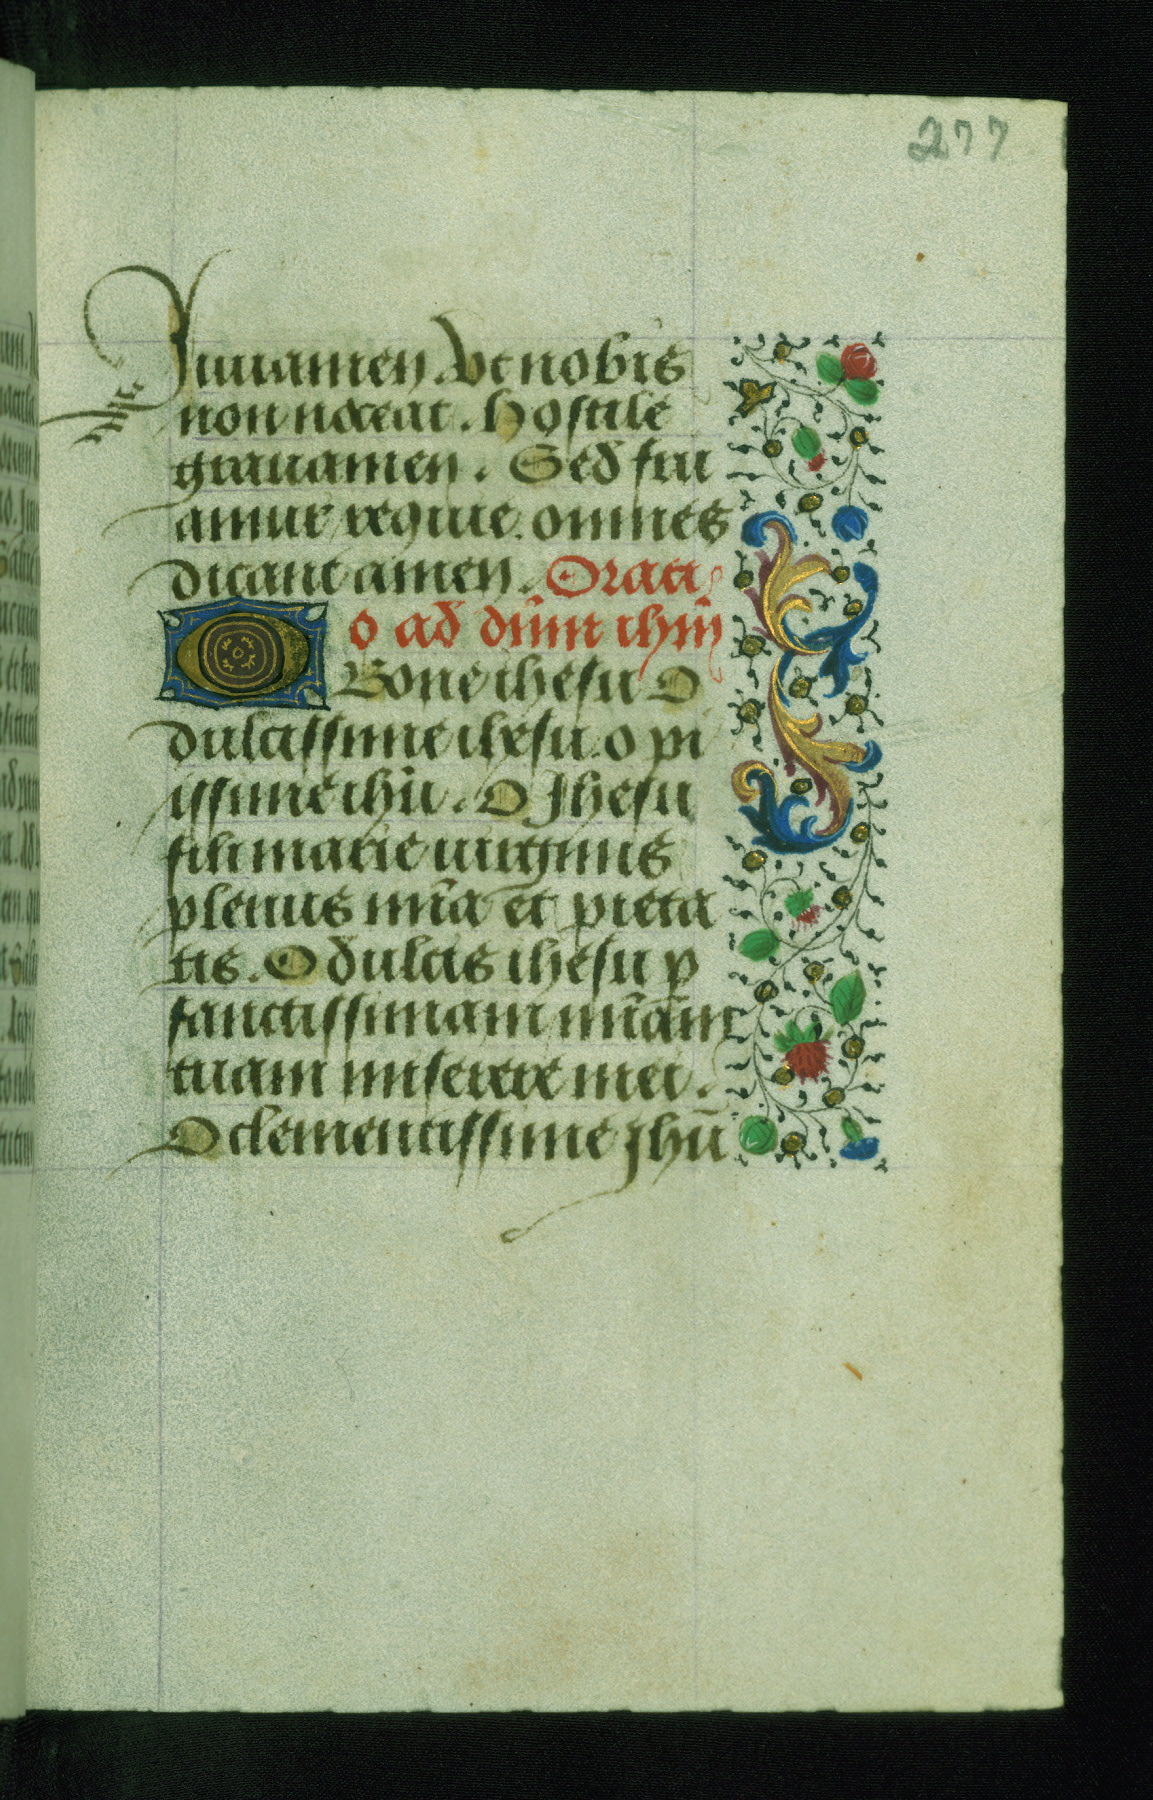 277
Iuuamen. Vt nobis
non noceat. hostile
grauamen. Sed fru
amur requie. omnes
dicant amen. Orati
o ad dn̄m ihm̄
O Bone ihesu O
dulcissime ihesu. o pi
issime ihū. O Ihesu
fili marie uirginis
plenus mīa et pieta
tis. O dulcis ihesu p
sanctissimam mīam
tuam miserere mei.
O clementissime Ihū